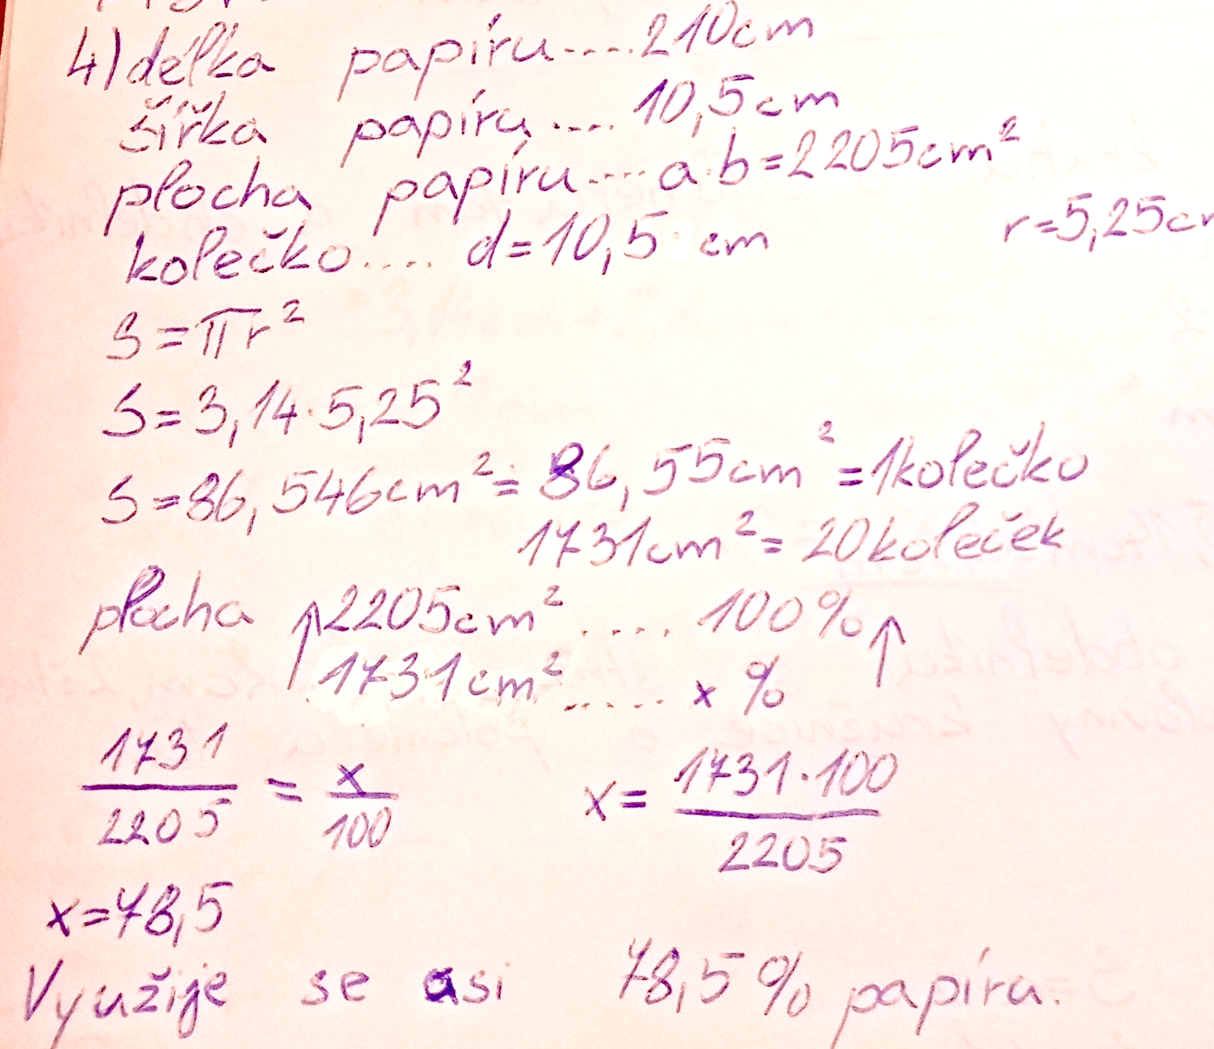 4) délka papíru....210cm
šířka papíru....10,5cm
plocha papíru....a·b=2205cm²
kolečko.... d=10,5 cm r=5,25cm
S=πr²
S=3,14·5,25²
S=86,546cm²= 86,55cm²=1kolečko
1731cm²=20koleček
plocha ↑2205cm² .... 100% ↑
1731cm² ..... x %
1731/2205 = x/100 x= 1731·100/2205
x=78,5
Využije se asi 78,5% papíru.